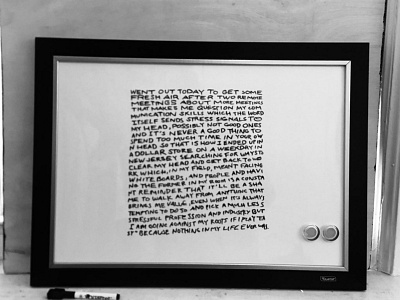 WENT OUT TODAY TO GET SOME
FRESH AIR AFTER TWO REMOTE
MEETINGS ABOUT MORE MEETINGS
THAT MAKES ME QUESTION MY COM
MUNICATION SKILLS WHICH THE WORD
ITSELF SENDS STRESS SIGNALS TO
MY HEAD, POSSIBLY NOT GOOD ONES
AND IT'S NEVER A GOOD THING TO
SPEND TOO MUCH TIME IN YOUR OW
N HEAD SO THAT IS HOW I ENDED UP IN
A DOLLAR STORE ON A WEEKDAY IN
NEW JERSEY SEARCHING FOR WAYS TO
CLEAR MY HEAD AND GET BACK TO WO
RK WHICH, IN MY FIELD, MEANT FACING
WHITE BOARDS, AND PEOPLE AND HAVI
NG THE FORMER IN MY ROOM IS A CONSTA
NT REMINDER THAT IT'LL BE A SHA
ME TO WALK AWAY FROM ANYTHING THAT
BRINGS ME VALUE, EVEN WHEN IT'S ALWAYS
TEMPTING TO DO SO AND PICK A MUCH LESS
STRESSFUL PROFESSION AND INDUSTRY BUT
I AM GOING AGAINST MY ROOTS IF I PLAY "EA
SY" BECAUSE NOTHING IN MY LIFE EVER WAS.